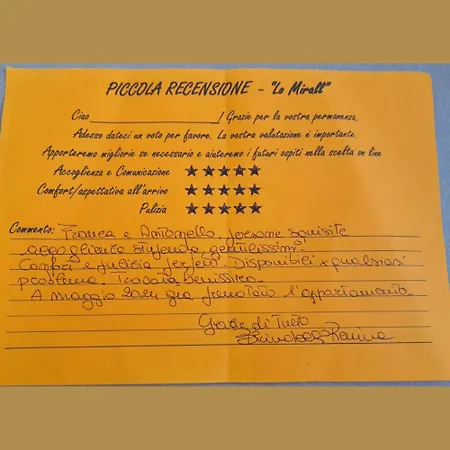 PICCOLA RECENSIONE - "Lo Mirall"
Ciao ____________________! Grazie per la vostra permanenza.
Adesso dateci un voto per favore. La vostra valutazione è importante.
Apporteremo migliorie se necessario e aiuteremo i futuri ospiti nella scelta on line
Accoglienza e Comunicazione ★★★★★
Comfort/aspettativa all'arrivo ★★★★★
Pulizia ★★★★★
Commento: Franca e Antonello, persone squisite
accoglienza stupenda gentilissimi
Confort e pulizia perfetti Disponibili x qualsiasi
problema. Trovata benissimo.
A maggio 2024 già prenotato l'appartamento.
Grazie di Tutto